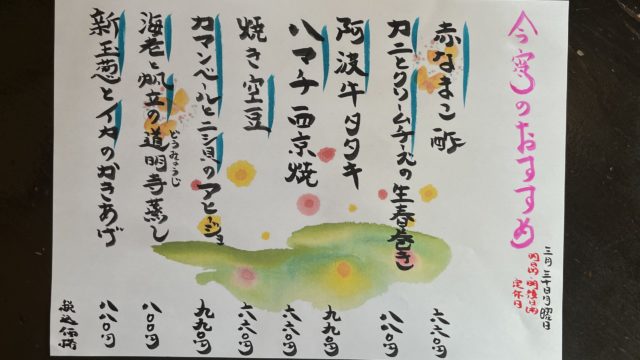 今宵のおすすめ
三月三十日月曜日
定休日
赤なまこ酢 六六〇円
カニとクリームチーズの生春巻き 八八〇円
阿波牛タタキ 九九〇円
ハマチ西京焼 六六〇円
焼き空豆 六六〇円
カマンベールとニシ貝のアヒージョ 九九〇円
海老と帆立の道明寺蒸し 八〇〇円
どうみょうじ
新玉葱とイカのかきあげ 八八〇円
税込価格